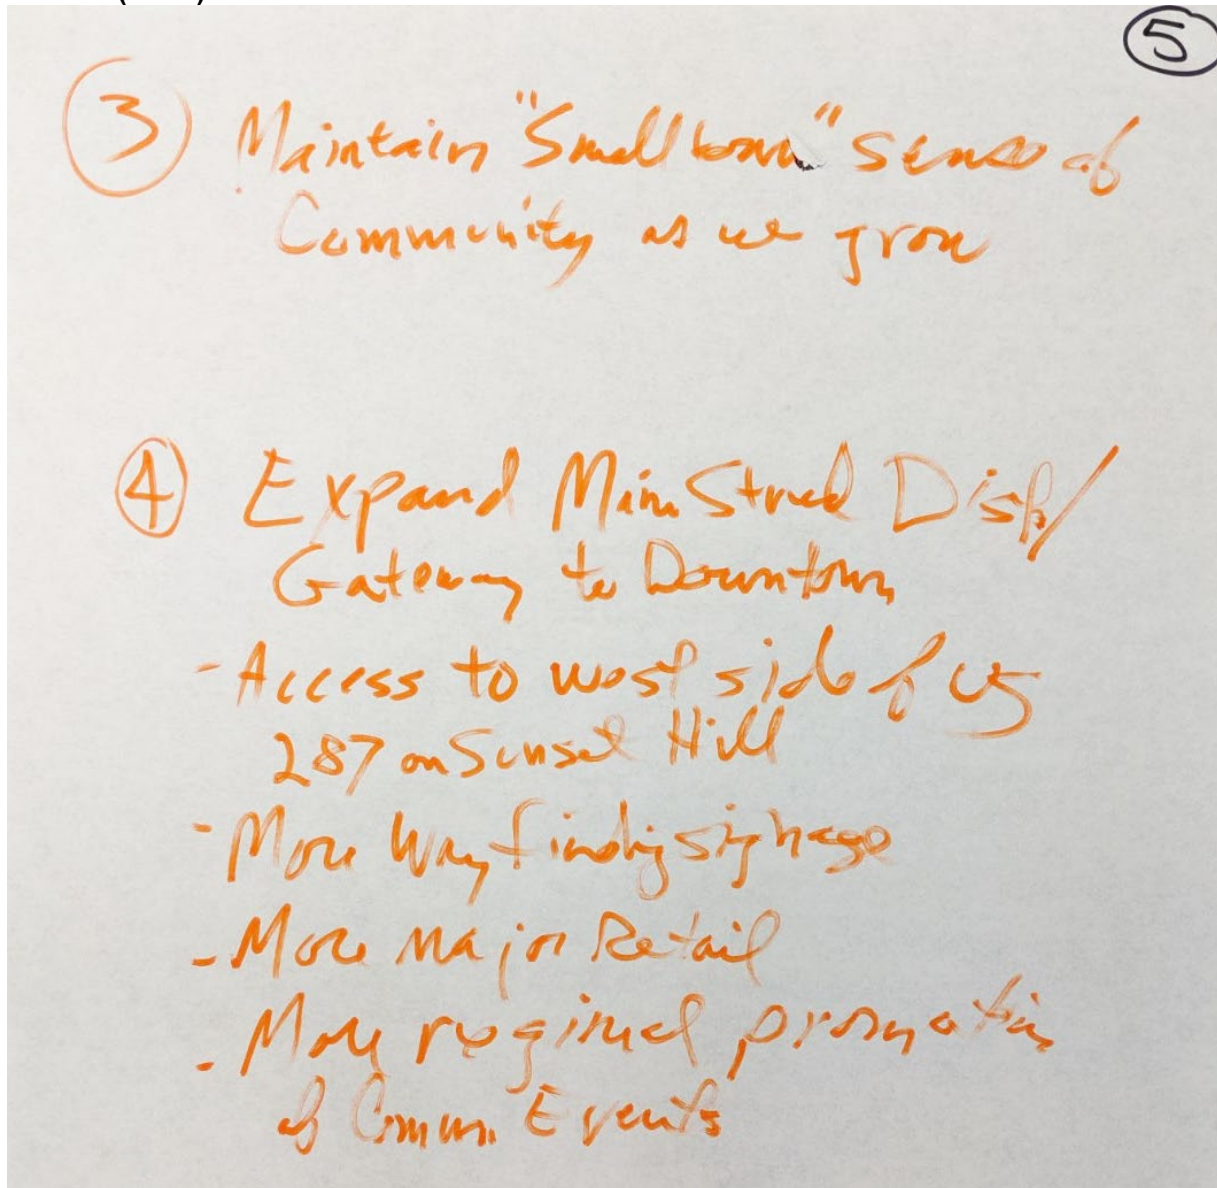 5
3 Maintain "Small town" sense of
Community as we grow
4 Expand Main Street Dist/
Gateway to Downtown
- Access to west side of US
287 on Sunset Hill
- More Wayfinding signage
- More Major Retail
- More regional promotion
of Comm. Events